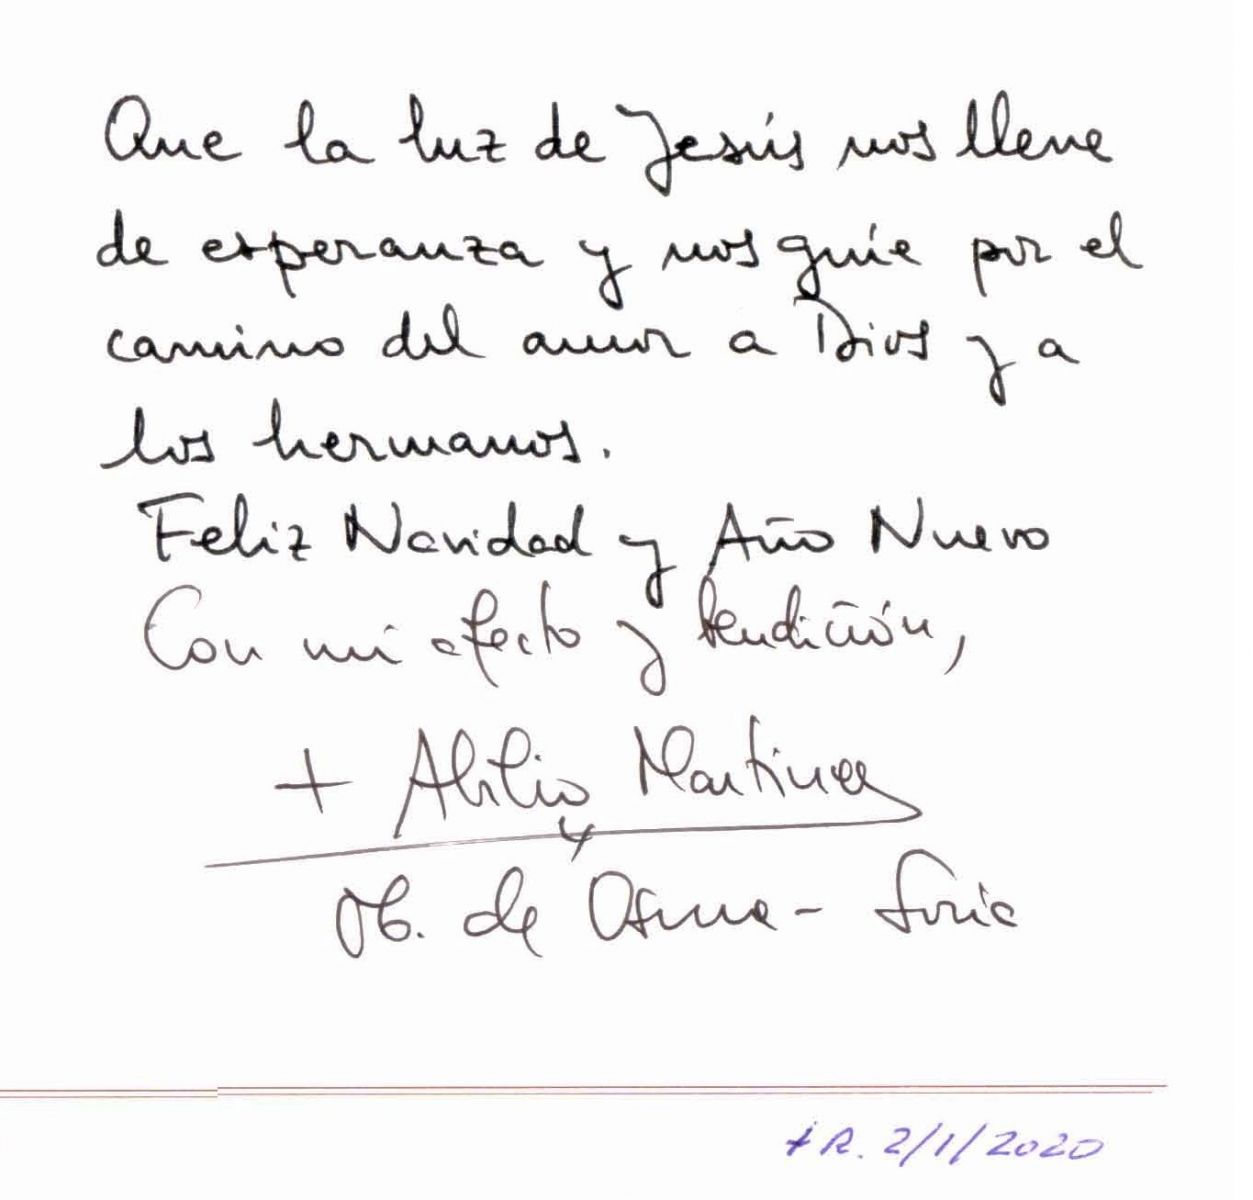 Que la luz de Jesús nos llene
de esperanza y nos guíe por el
camino del amor a Dios y a
los hermanos.
Feliz Navidad y Año Nuevo
Con mi afecto y bendición,
+ Abilio Martínez
Ob. de Osma - Soria
+ R. 2/1/2020